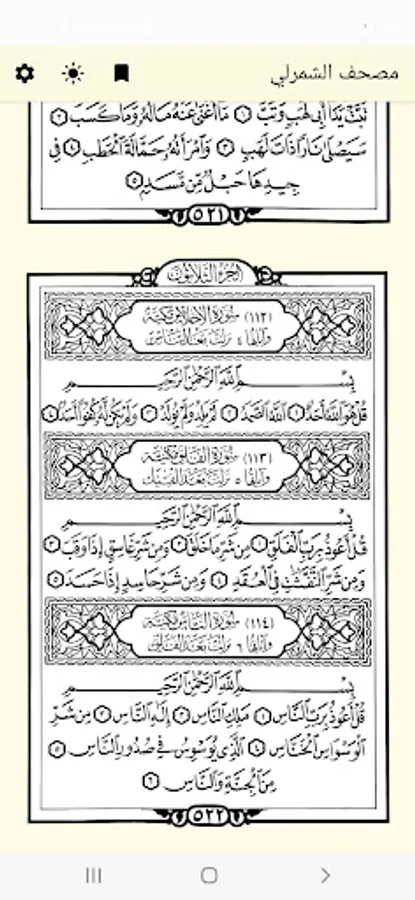 مصحف الشمرلي
تَبَّتْ يَدَا أَبِي لَهَبٍ وَتَبَّ ١ مَا أَغْنَىٰ عَنْهُ مَالُهُ وَمَا كَسَبَ ٢
سَيَصْلَىٰ نَارًا ذَاتَ لَهَبٍ ٣ وَامْرَأَتُهُ حَمَّالَةَ الْحَطَبِ ٤ فِي
جِيدِهَا حَبْلٌ مِّن مَّسَدٍ ٥
٥٢١
الجزء الثلاثون
(١١٢) سورة الإخلاص مكية
وآياتها ٤ نزلت بعد الناس
بِسْمِ اللَّهِ الرَّحْمَٰنِ الرَّحِيمِ
قُلْ هُوَ اللَّهُ أَحَدٌ ١ اللَّهُ الصَّمَدُ ٢ لَمْ يَلِدْ وَلَمْ يُولَدْ ٣ وَلَمْ يَكُن لَّهُ كُفُوًا أَحَدٌ ٤
(١١٣) سورة الفلق مكية
وآياتها ٥ نزلت بعد الفيل
بِسْمِ اللَّهِ الرَّحْمَٰنِ الرَّحِيمِ
قُلْ أَعُوذُ بِرَبِّ الْفَلَقِ ١ مِن شَرِّ مَا خَلَقَ ٢ وَمِن شَرِّ غَاسِقٍ إِذَا وَقَبَ ٣
وَمِن شَرِّ النَّفَّٰثَٰتِ فِي الْعُقَدِ ٤ وَمِن شَرِّ حَاسِدٍ إِذَا حَسَدَ ٥
(١١٤) سورة الناس مكية
وآياتها ٦ نزلت بعد الفلق
بِسْمِ اللَّهِ الرَّحْمَٰنِ الرَّحِيمِ
قُلْ أَعُوذُ بِرَبِّ النَّاسِ ١ مَلِكِ النَّاسِ ٢ إِلَٰهِ النَّاسِ ٣ مِن شَرِّ
الْوَسْوَاسِ الْخَنَّاسِ ٤ الَّذِي يُوَسْوِسُ فِي صُدُورِ النَّاسِ ٥
مِنَ الْجِنَّةِ وَالنَّاسِ ٦
٥٢٢